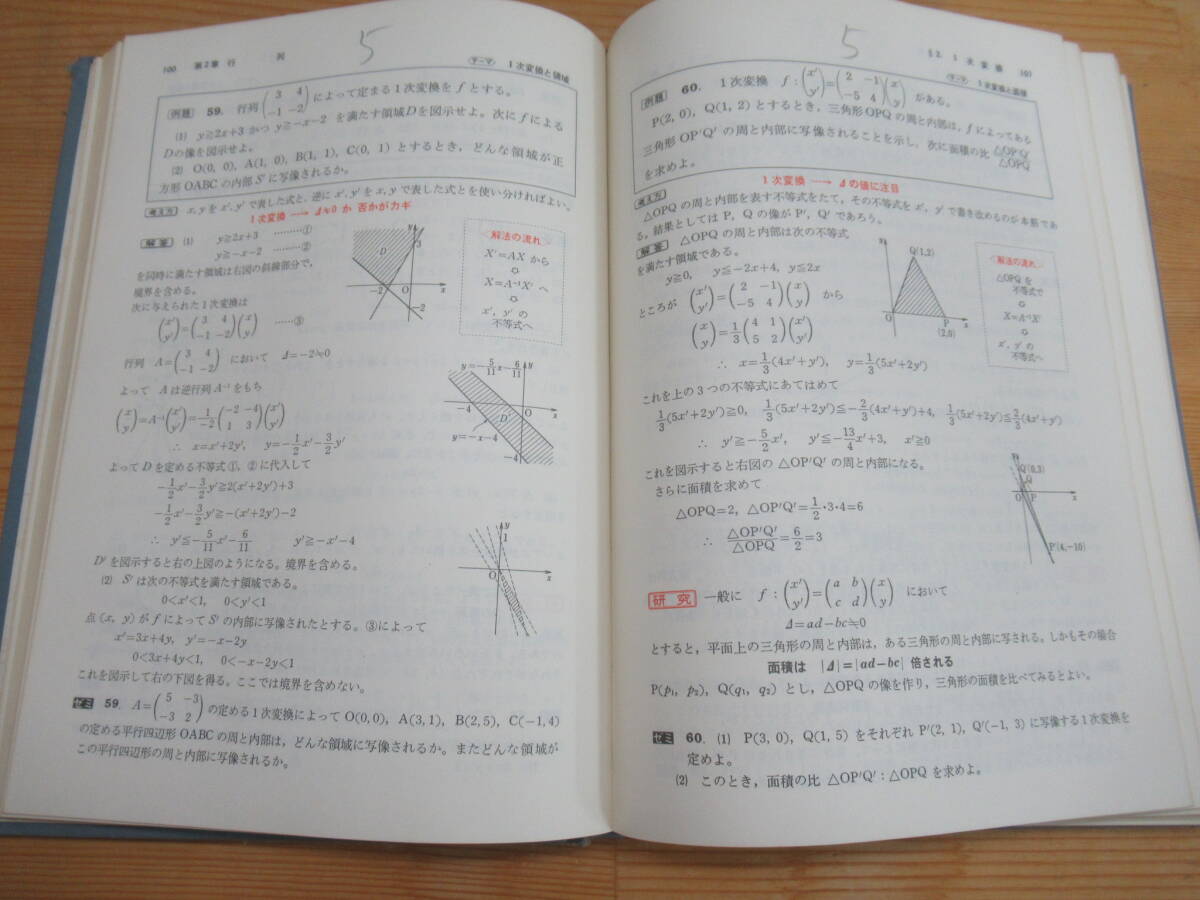 5
100 第2章 行 列
テーマ 1次変換と領域
例題 59. 行列 (3 4 / -1 -2) によって定まる1次変換を f とする。
(1) y≧2x+3 かつ y≧-x-2 を満たす領域Dを図示せよ。次に f による
Dの像を図示せよ。
(2) O(0, 0), A(1, 0), B(1, 1), C(0, 1)とするとき,どんな領域が正
方形OABCの内部S′に写像されるか。
考え方 x, y を x′, y′ で表した式と、逆に x′, y′ を x, y で表した式とを使い分ければよい。
1次変換 → Δ≒0 か 否かがカギ
解答 (1) y≧2x+3 ………①
y≧-x-2 ………②
を同時に満たす領域は右図の斜線部分で,
境界を含める。
次に与えられた1次変換は
(x′ / y′)=(3 4 / -1 -2)(x / y) ……③
行列 A=(3 4 / -1 -2) において Δ=-2≒0
よって Aは逆行列A⁻¹をもち
(x / y)=A⁻¹(x′ / y′)=1/-2(-2 -4 / 1 3)(x′ / y′)
∴ x=x′+2y′, y=-1/2x′-3/2y′
よってDを定める不等式①, ②に代入して
-1/2x′-3/2y′≧2(x′+2y′)+3
-1/2x′-3/2y′≧-(x′+2y′)-2
∴ y′≦-5/11x′-6/11 y′≧-x′-4
D′を図示すると右の上図のようになる。境界を含める。
(2) S′は次の不等式を満たす領域である。
0<x′<1, 0<y′<1
点(x, y)が f によって S′の内部に写像されたとする。③によって
x′=3x+4y, y′=-x-2y
0<3x+4y<1, 0<-x-2y<1
これを図示して右の下図を得る。ここでは境界を含めない。
ゼミ 59. A=(5 -3 / -3 2) の定める1次変換によって O(0,0), A(3,1), B(2,5), C(-1,4)
の定める平行四辺形OABCの周と内部は,どんな領域に写像されるか。またどんな領域が
この平行四辺形の周と内部に写像されるか。
y
3
D
-2
O
x
-2
解法の流れ
X′=AX から
⇩
X=A⁻¹X′ へ
⇩
x′, y′ の
不等式へ
y=-5/11x-6/11
y
-4
O
x
D′
y=-x-4
-4
y
1
O
x
5
§2. 1 次 変 換 101
テーマ 1次変換と面積
例題 60. 1次変換 f:(x′ / y′)=(2 -1 / -5 4)(x / y) がある。
P(2, 0), Q(1, 2)とするとき, 三角形OPQの周と内部は, f によってある
三角形OP′Q′の周と内部に写像されることを示し, 次に面積の比 △OP′Q′/△OPQ
を求めよ。
1次変換 → Δの値に注目
考え方 △OPQの周と内部を表す不等式をたて, その不等式を x′, y′ で書き改めるのが本筋であ
る。結果としては P, Q の像が P′, Q′ であろう。
解答 △OPQの周と内部は次の不等式
を満たす領域である。
y≧0, y≦-2x+4, y≦2x
ところが (x′ / y′)=(2 -1 / -5 4)(x / y) から
(x / y)=1/3(4 1 / 5 2)(x′ / y′)
∴ x=1/3(4x′+y′), y=1/3(5x′+2y′)
これを上の3つの不等式にあてはめて
1/3(5x′+2y′)≧0, 1/3(5x′+2y′)≦-2/3(4x′+y′)+4, 1/3(5x′+2y′)≦2/3(4x′+y′)
∴ y′≧-5/2x′, y′≦-13/4x′+3, x′≧0
これを図示すると右図の △OP′Q′の周と内部になる。
さらに面積を求めて
△OPQ=2, △OP′Q′=1/2・3・4=6
∴ △OP′Q′/△OPQ=6/2=3
y
Q(1,2)
O
P
(2,0)
x
解法の流れ
△OPQを
不等式で
⇩
X=A⁻¹X′
⇩
x′, y′ の
不等式へ
y
Q′(0,3)
Q
O
P
x
P′(4,-10)
研究 一般に f:(x′ / y′)=(a b / c d)(x / y) において
Δ=ad-bc≒0
とすると, 平面上の三角形の周と内部は, ある三角形の周と内部に写される。しかもその場合
面積は |Δ|=|ad-bc| 倍される
P(p₁, p₂), Q(q₁, q₂) とし, △OPQの像を作り, 三角形の面積を比べてみるとよい。
ゼミ 60. (1) P(3, 0), Q(1, 5) をそれぞれ P′(2, 1), Q′(-1, 3) に写像する1次変換を
定めよ。
(2) このとき, 面積の比 △OP′Q′:△OPQ を求めよ。